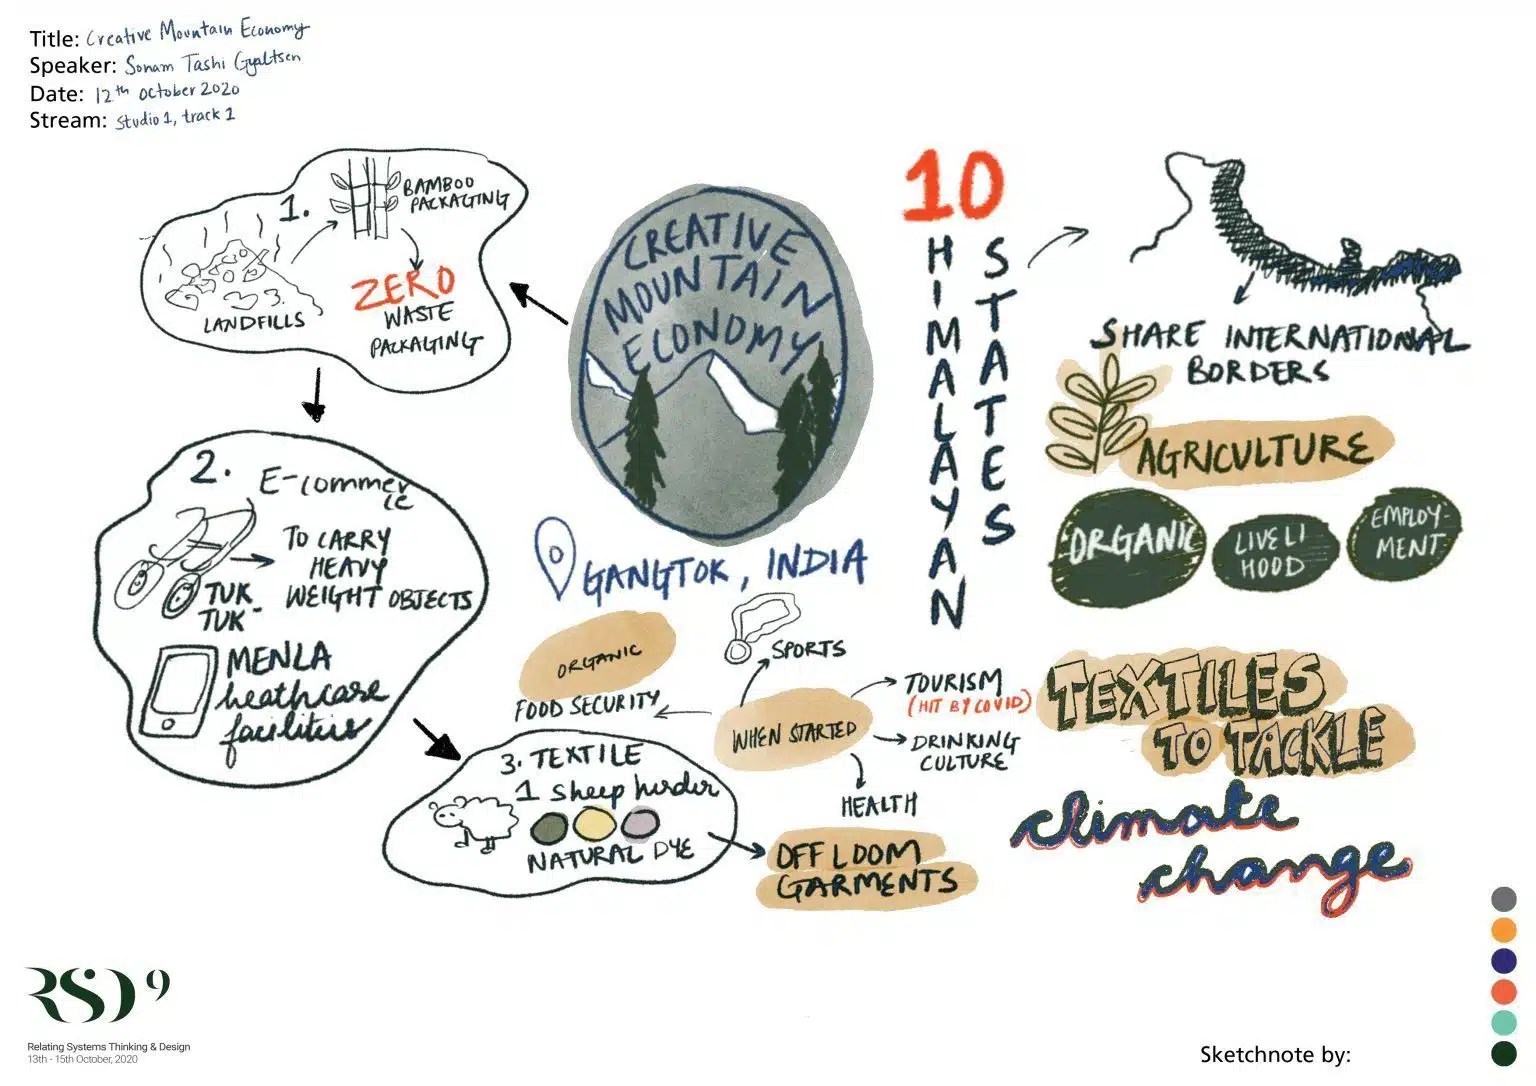 Title: Creative Mountain Economy
Speaker: Sonam Tashi Gyaltsen
Date: 12th october 2020
Stream: Studio 1, track 1
1.
BAMBOO
PACKAGING
LANDFILLS
ZERO
WASTE
PACKAGING
2. E-commer
ce
TO CARRY
HEAVY
WEIGHT OBJECTS
TUK
TUK
MENLA
heathcare
facilities
3. TEXTILE
1 sheep herder
NATURAL DYE
OFF LOOM
GARMENTS
CREATIVE
MOUNTAIN
ECONOMY
GANGTOK, INDIA
ORGANIC
FOOD SECURITY
SPORTS
WHEN STARTED
TOURISM
(HIT BY COVID)
DRINKING
CULTURE
HEALTH
10
HIMALAYAN
STATES
SHARE INTERNATIONAL
BORDERS
AGRICULTURE
ORGANIC
LIVELI
HOOD
EMPLOY-
MENT
TEXTILES
TO TACKLE
climate
change
RSD9
Relating Systems Thinking & Design
13th - 15th October, 2020
Sketchnote by: